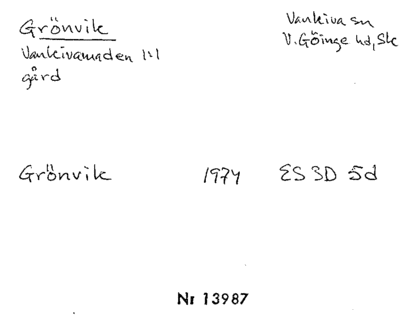 Grönvik
Vankivamaden 1:1
gård
Vankiva sn
V. Göinge hd, Sk
Grönvik 1974 ES 3D 5d
Nr 13987